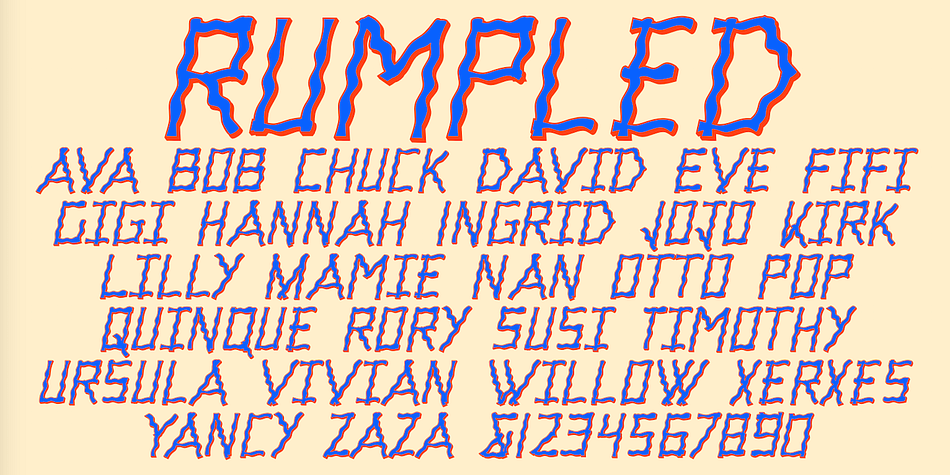 RUMPLED
AVA BOB CHUCK DAVID EVE FIFI
GIGI HANNAH INGRID JOJO KIRK
LILLY MAMIE NAN OTTO POP
QUINQUE RORY SUSI TIMOTHY
URSULA VIVIAN WILLOW XERXES
YANCY ZAZA &1234567890